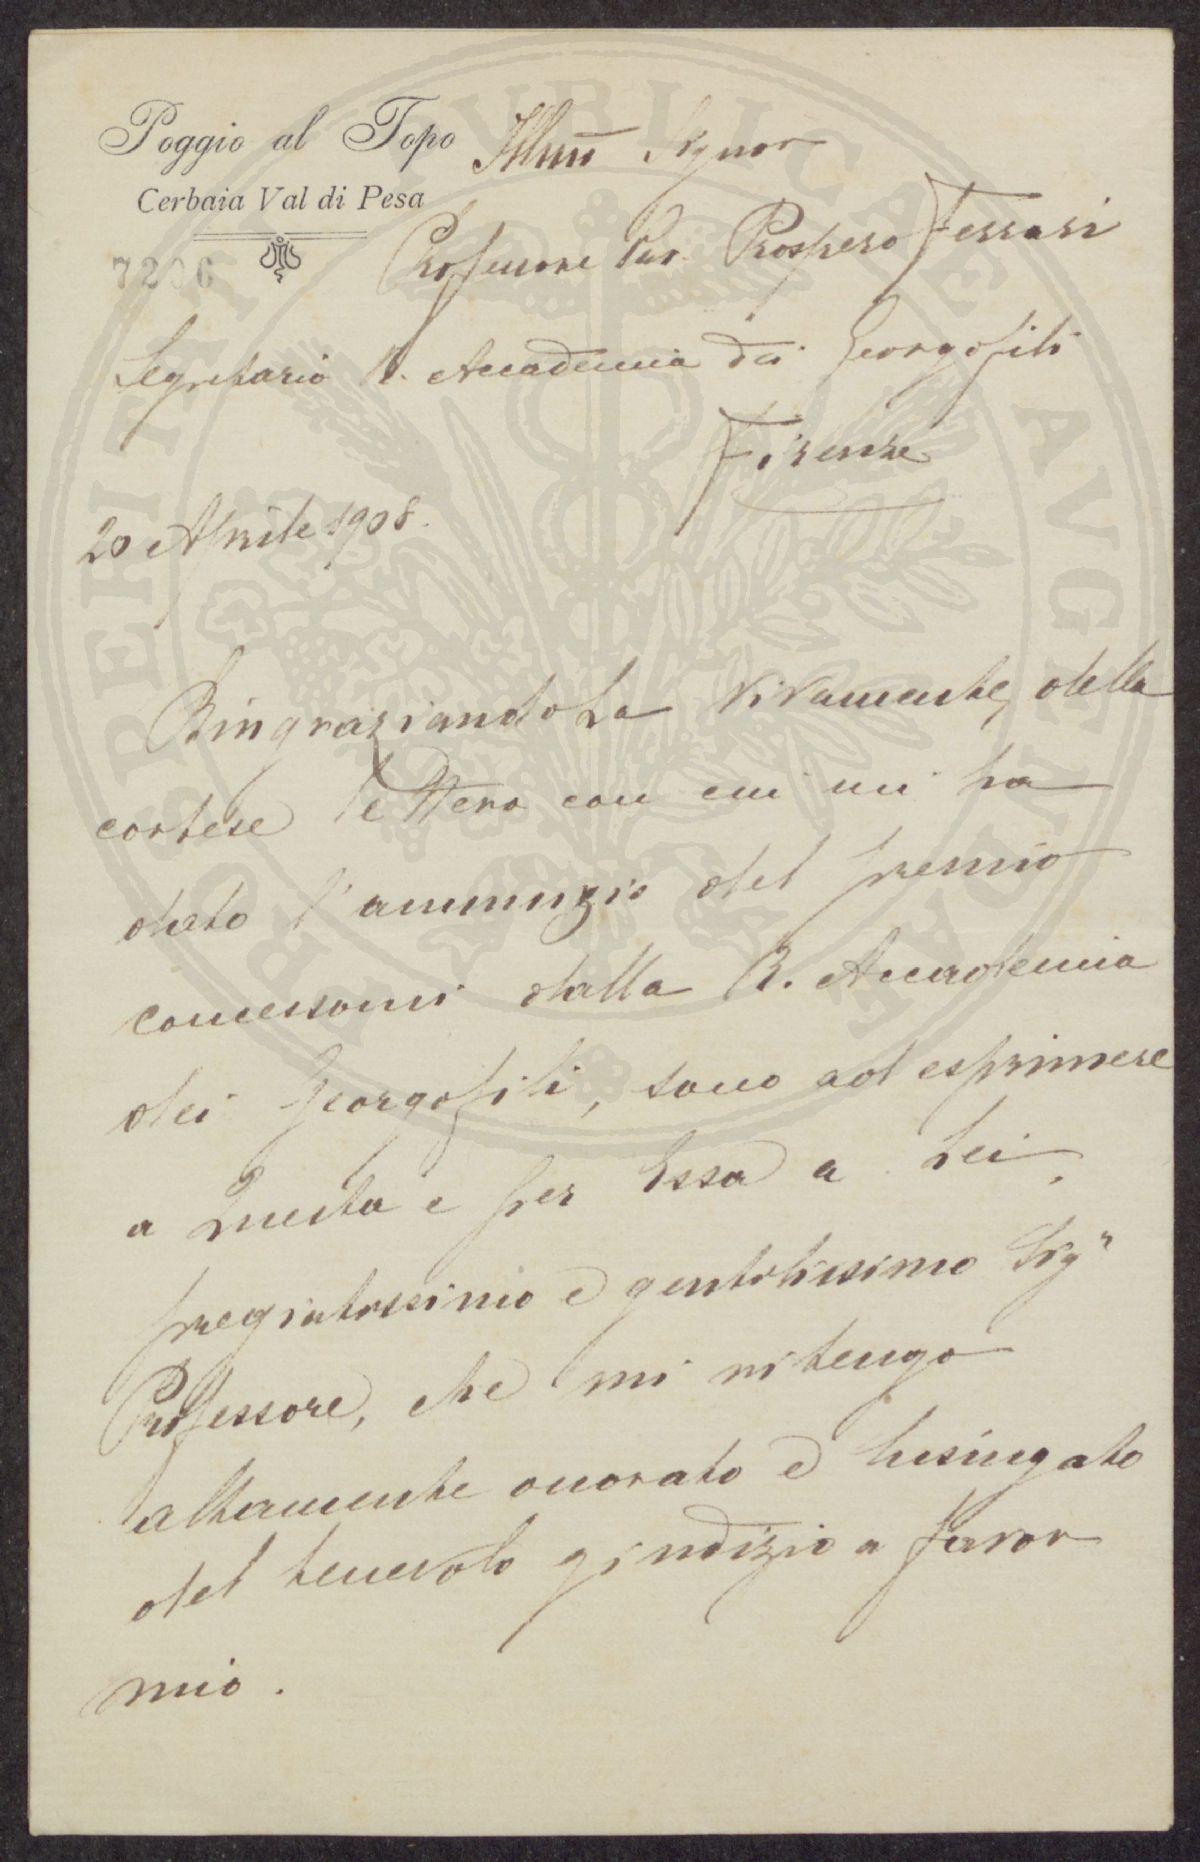 Poggio al Topo
Cerbaia Val di Pesa
7206
Illmo Signor
Professore Prospero Ferrari
Segretario R. Accademia dei Georgofili
Firenze
20 Aprile 1908.
RingraziandoLa vivamente, della
cortese lettera con cui mi ha
dato l'annunzio del premio
concessomi dalla R. Accademia
dei Georgofili, sono ad esprimere
a Questa e per Essa a Lei,
pregiatissimo e gentilissimo Sigr
Professore, che mi ritengo
altamente onorato e lusingato
del benevolo giudizio a favor
mio.
PROSPERITATI PVBLICAE AVGENDAE